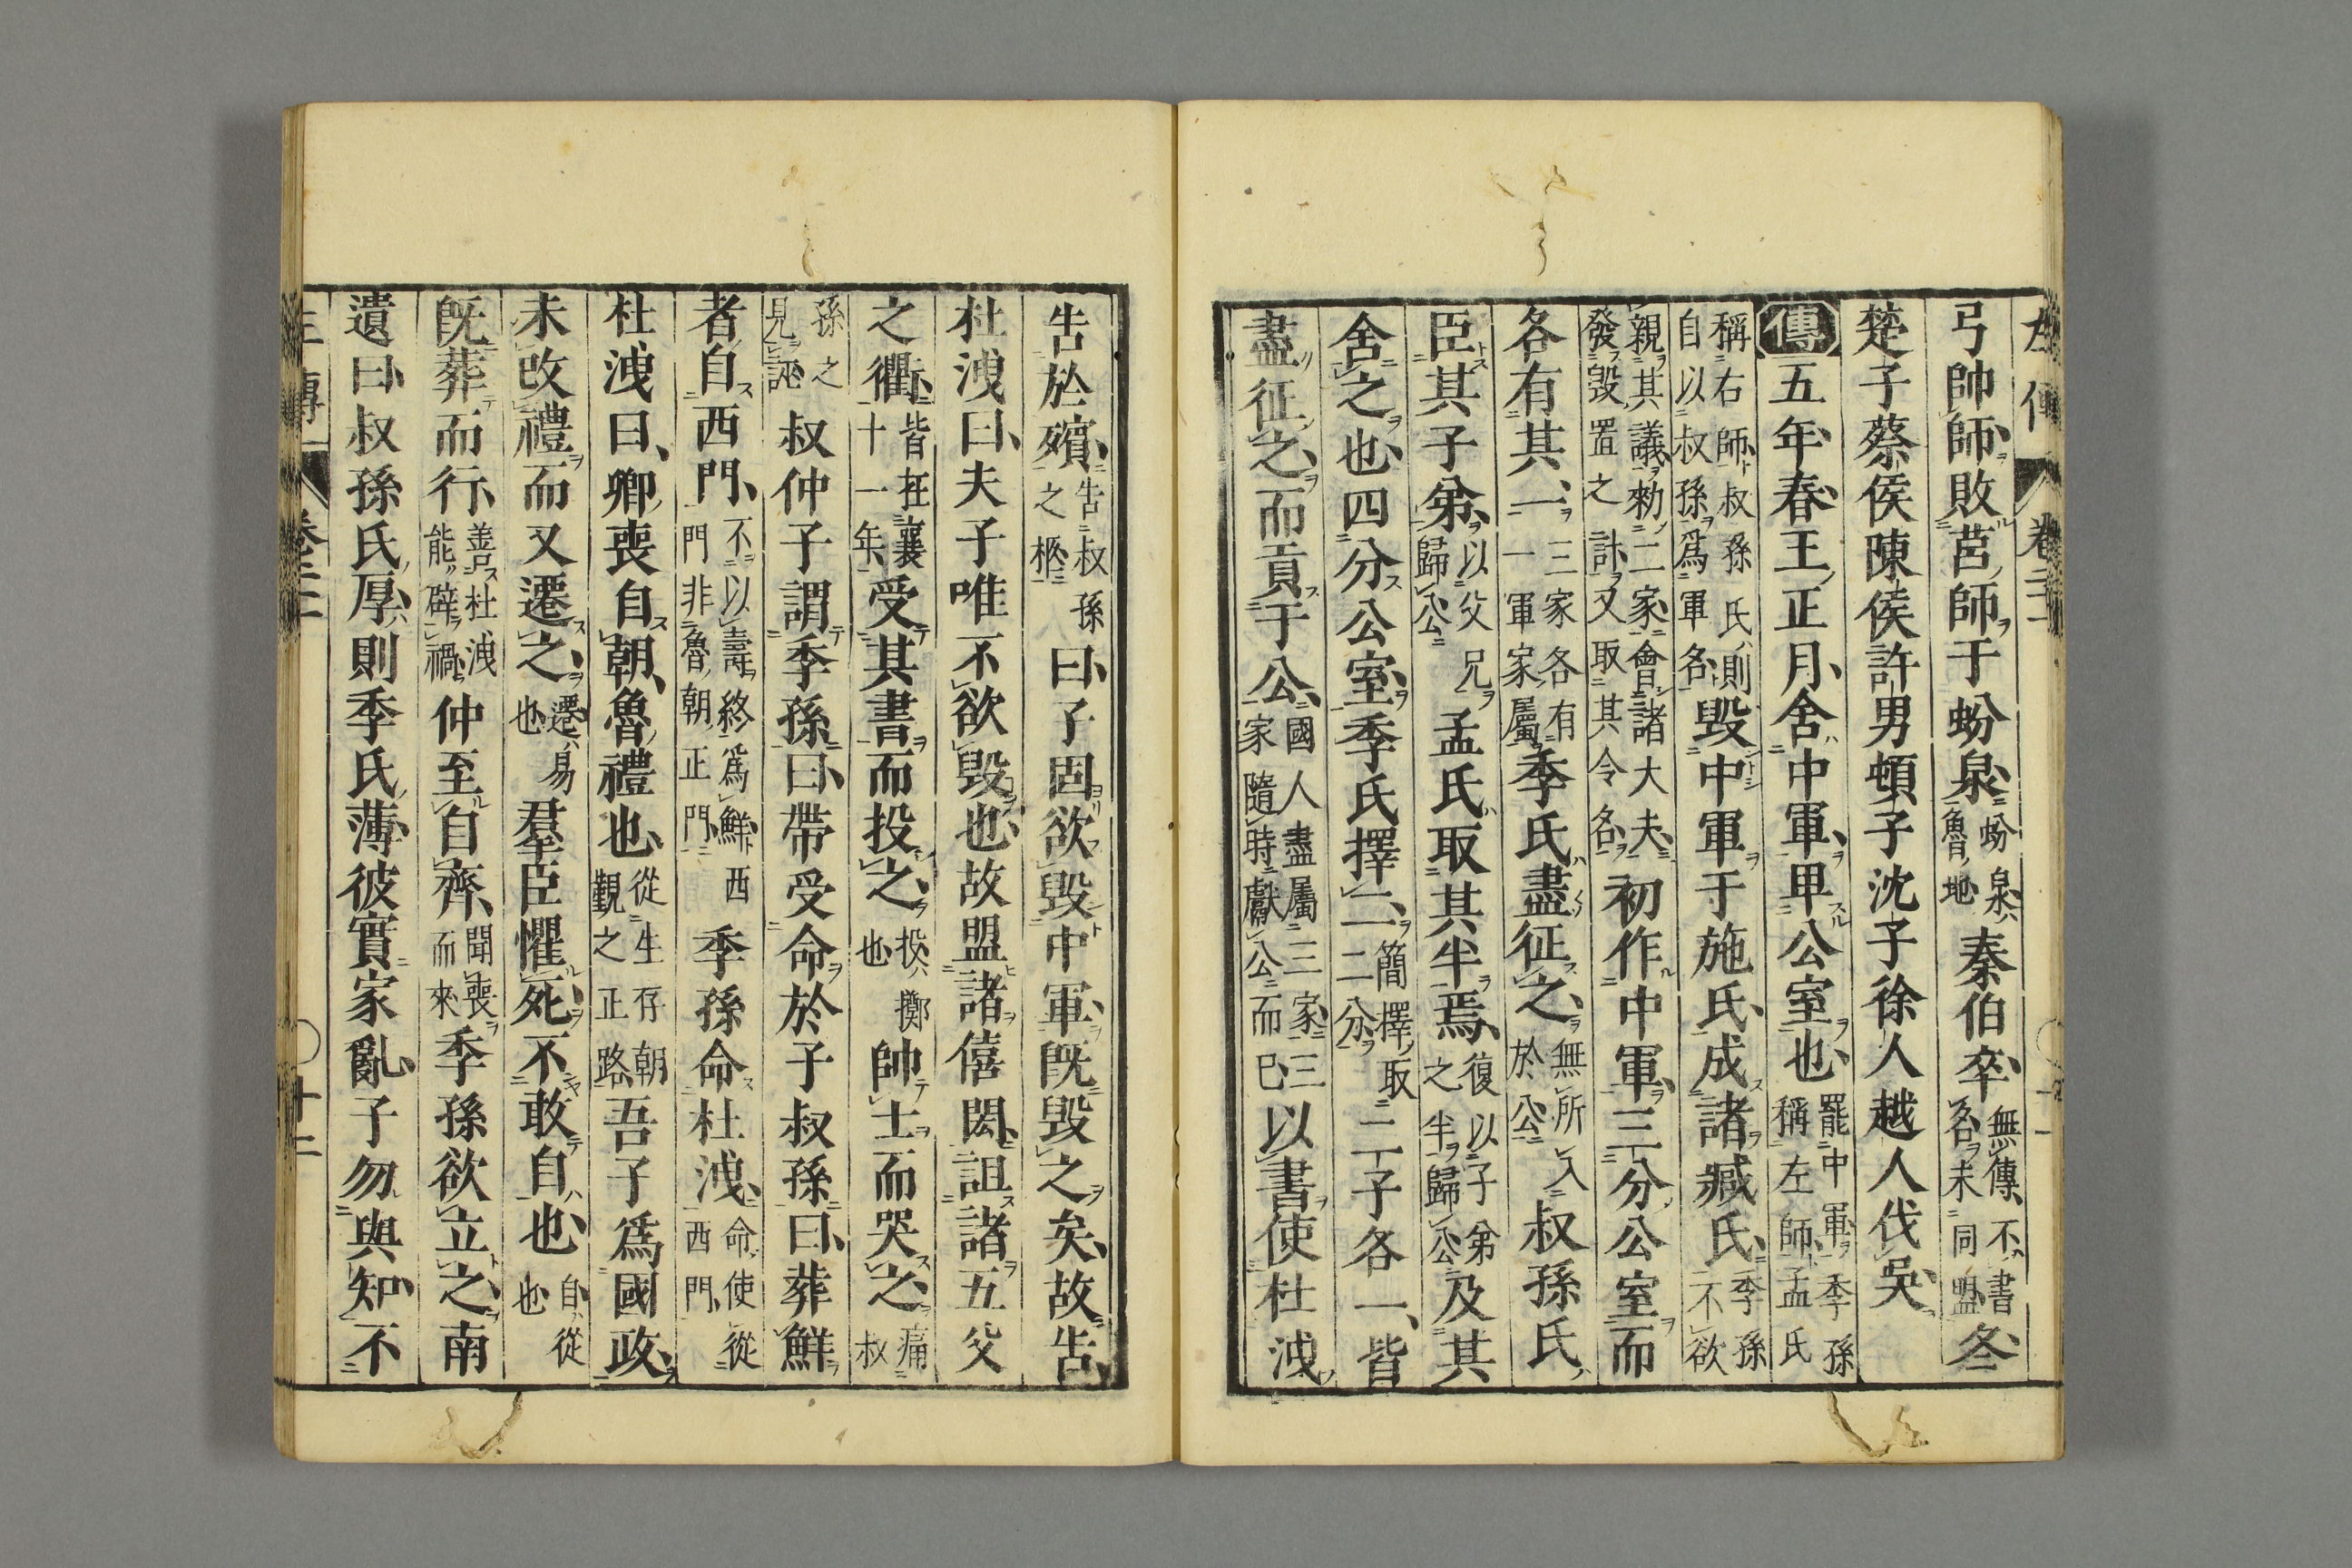 左傳 卷二十一
弓帥師敗莒師于蚡泉蚡泉魯地秦伯卒無傳不書名未同盟冬
楚子蔡侯陳侯許男頓子沈子徐人越人伐吳
傳五年春王正月舍中軍卑公室也罷中軍季孫稱左師孟氏
稱右師叔孫氏則自以叔孫爲軍名毀中軍于施氏成諸臧氏季孫不欲
親其議勑二家會諸大夫發毀置之計又取其令名初作中軍三分公室而
各有其一三家各有一軍家屬季氏盡征之無所入於公叔孫氏
臣其子弟以父兄歸公孟氏取其半焉復以子弟之半歸公及其
舍之也四分公室季氏擇二簡擇取二分二子各一皆
盡征之而貢于公國人盡屬三家三家隨時獻公而已以書使杜洩
告於殯告叔孫之柩曰子固欲毀中軍旣毀之矣故告
杜洩曰夫子唯不欲毀也故盟諸僖閎詛諸五父
之衢皆在襄十一年受其書而投之投擲也帥士而哭之痛叔
孫之見誣叔仲子謂季孫曰帶受命於子叔孫曰葬鮮
者自西門不以壽終爲鮮西門非魯朝正門季孫命杜洩命使從西門
杜洩曰卿喪自朝魯禮也從生存朝覲之正路吾子爲國政
未改禮而又遷之遷易也羣臣懼死不敢自也自從也
旣葬而行善杜洩能辟禍仲至自齊聞喪而來季孫欲立之南
遺曰叔孫氏厚則季氏薄彼實家亂子勿與知不
左傳 卷二十一 十二